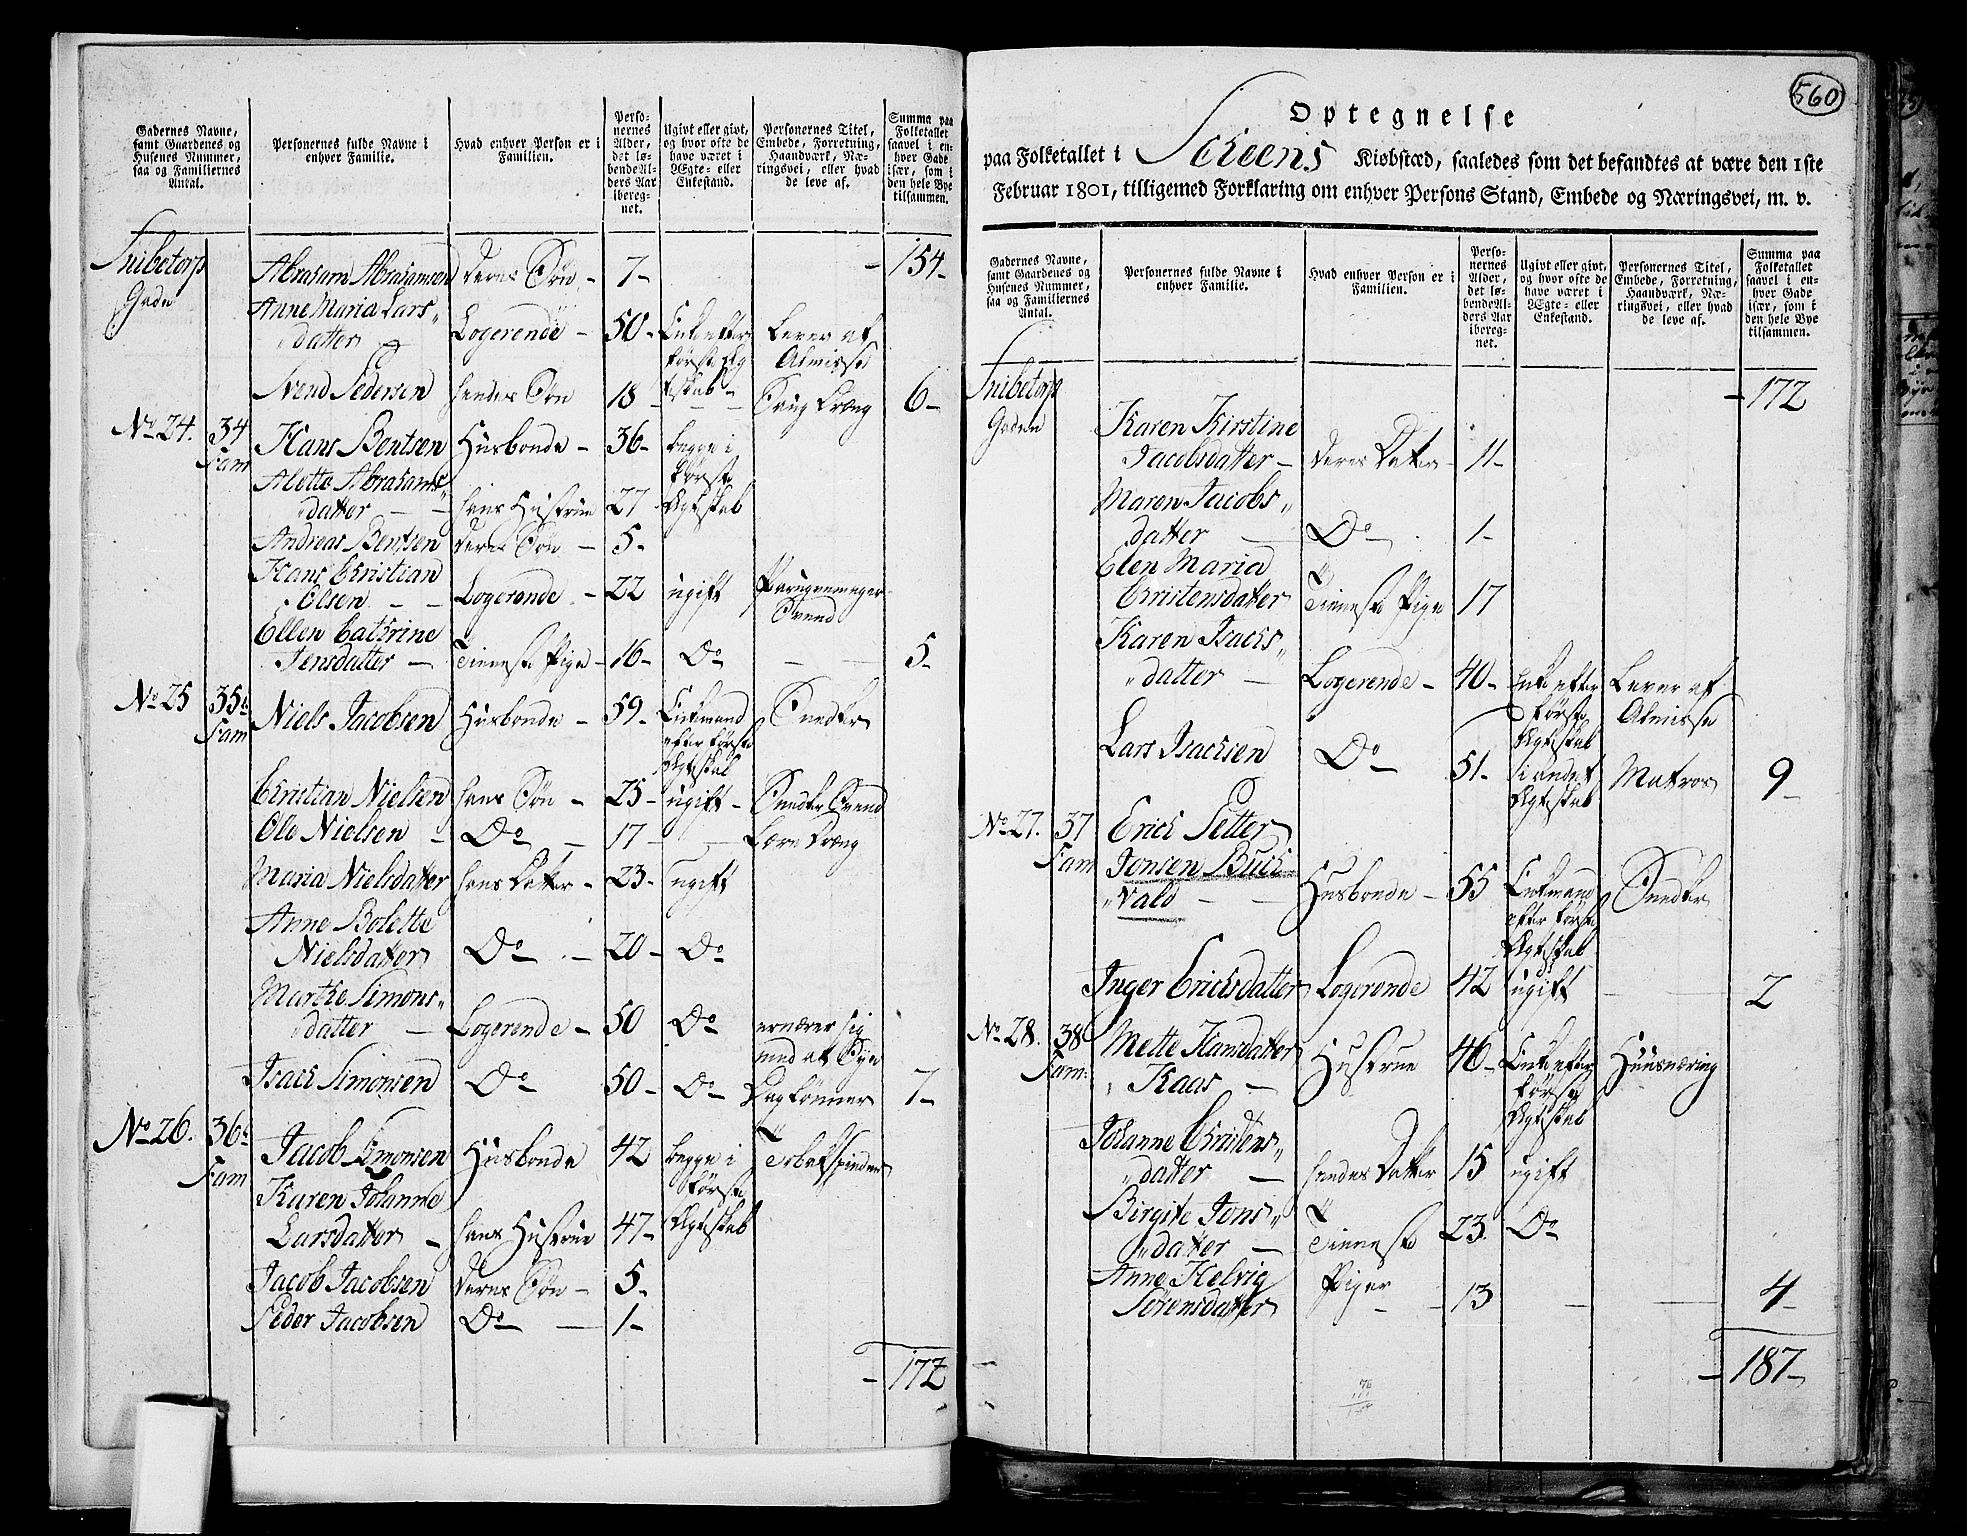 Gadernes Navne, samt Gaardenes og Husenes Nummer, saa og Familiernes Antal.
Personernes fulde Navne i enhver Familie.
Hvad enhver Person er i Familien.
Personernes Alder, det løbende Alders Aar iberegnet.
Ugivt eller givt, og hvor ofte de have været i Ægte- eller Enkestand.
Personernes Titel, Embede, Forretning, Haandværk, Næringsvei, eller hvad de leve af.
Summa paa Folketallet saavel i enhver Gade især, som i den hele Bye tilsammen.
Snibetorp Gaden
Abraham Abrahamsen deres Søn - 7 - - 154 -
Anne Maria Lars„
„datter Logerende - 50 - Enke efter første Ægteskab - Lever af Almisse
Svend Pedersen hendes Søn 18 - 6 -
No 24. 34 Fam Hans Bentsen Husbonde - 36 - begge i første Ægteskab
Alette Abrahams„
„datter - hans Hustrue 27
Andreas Bentsen deres Søn - 5 -
Hans Christian
Olsen - - Logerende - 22 ugift Svend
Ellen Cathrine
Jensdatter - Tieneste Pige - 16 - Do - - 5 -
No 25 35te Fam Niels Jacobsen Husbonde - 59 - Enkemand efter første Ægteskab Snedker
Christian Nielsen hans Søn - 25 - ugift - Snedker Svend
Ole Nielsen - Do - 17 - Lære Dræng
Maria Nielsdatter hans Datter - 23 - ugift
Anne Bolette
Nielsdatter Do - 20 - Do
Marthe Simons„
„datter - Logerende - 50 Do ernærer sig med at Sye
Isach Simonsen Do 50 - Do Daglønner 7 -
No 26. 36te Fam Jacob Simonsen Husbonde 42 begge i første Ægteskab Tobakspinder
Karen Johanne
Larsdatter - hans Hustrue 47 -
Jacob Jacobsen deres Søn - 5 -
Peder Jacobsen Do - 1 -
- 172
560
Optegnelse
paa Folketallet i Scheens Kiøbstæd, saaledes som det befandtes at være den 1ste
Februar 1801, tilligemed Forklaring om enhver Persons Stand, Embede og Næringsvei, m. v.
Gadernes Navne, samt Gaardenes og Husenes Nummer, saa og Familiernes Antal.
Personernes fulde Navne i enhver Familie.
Hvad enhver Person er i Familien.
Personernes Alder, det løbende Alders Aar iberegnet.
Ugivt eller givt, og hvor ofte de have været i Ægte- eller Enkestand.
Personernes Titel, Embede, Forretning, Haandværk, Næringsvei, eller hvad de leve af.
Summa paa Folketallet saavel i enhver Gade især, som i den hele Bye tilsammen.
Snibetorp Gaden - 172
Karen Kirstine
Jacobsdatter - deres Datter - 11 -
Maren Jacobs„
datter - Do - 1 -
Elen Maria
Christensdatter Tieneste Pige 17
Karen Isachs„
„datter - Logerende - 40 - Enke efter første Ægteskab Lever af Almisse
Lars Isachsen Do - 51 - i andet Ægteskab Matros 9 -
No 27. 37 Fam Erich Petter
Jensen Buch„
„Vald - - Husbonde - 55 Enkemand efter første Ægteskab Snedker
Inger Erichsdatter Logerende 42 ugift - - 2
No 28. 38te Fam: Mette Hansdatter
„Kaas - Hustrue 46 - Enke efter første Ægteskab Huusnæring
Johanne Christens„
„datter - hendes Datter 15 ugift
Birgite Jens„
„datter - Tieneste 23. Do
Anne Helvig
Sørensdatter Piger - 13 - - 4 -
- 187 -